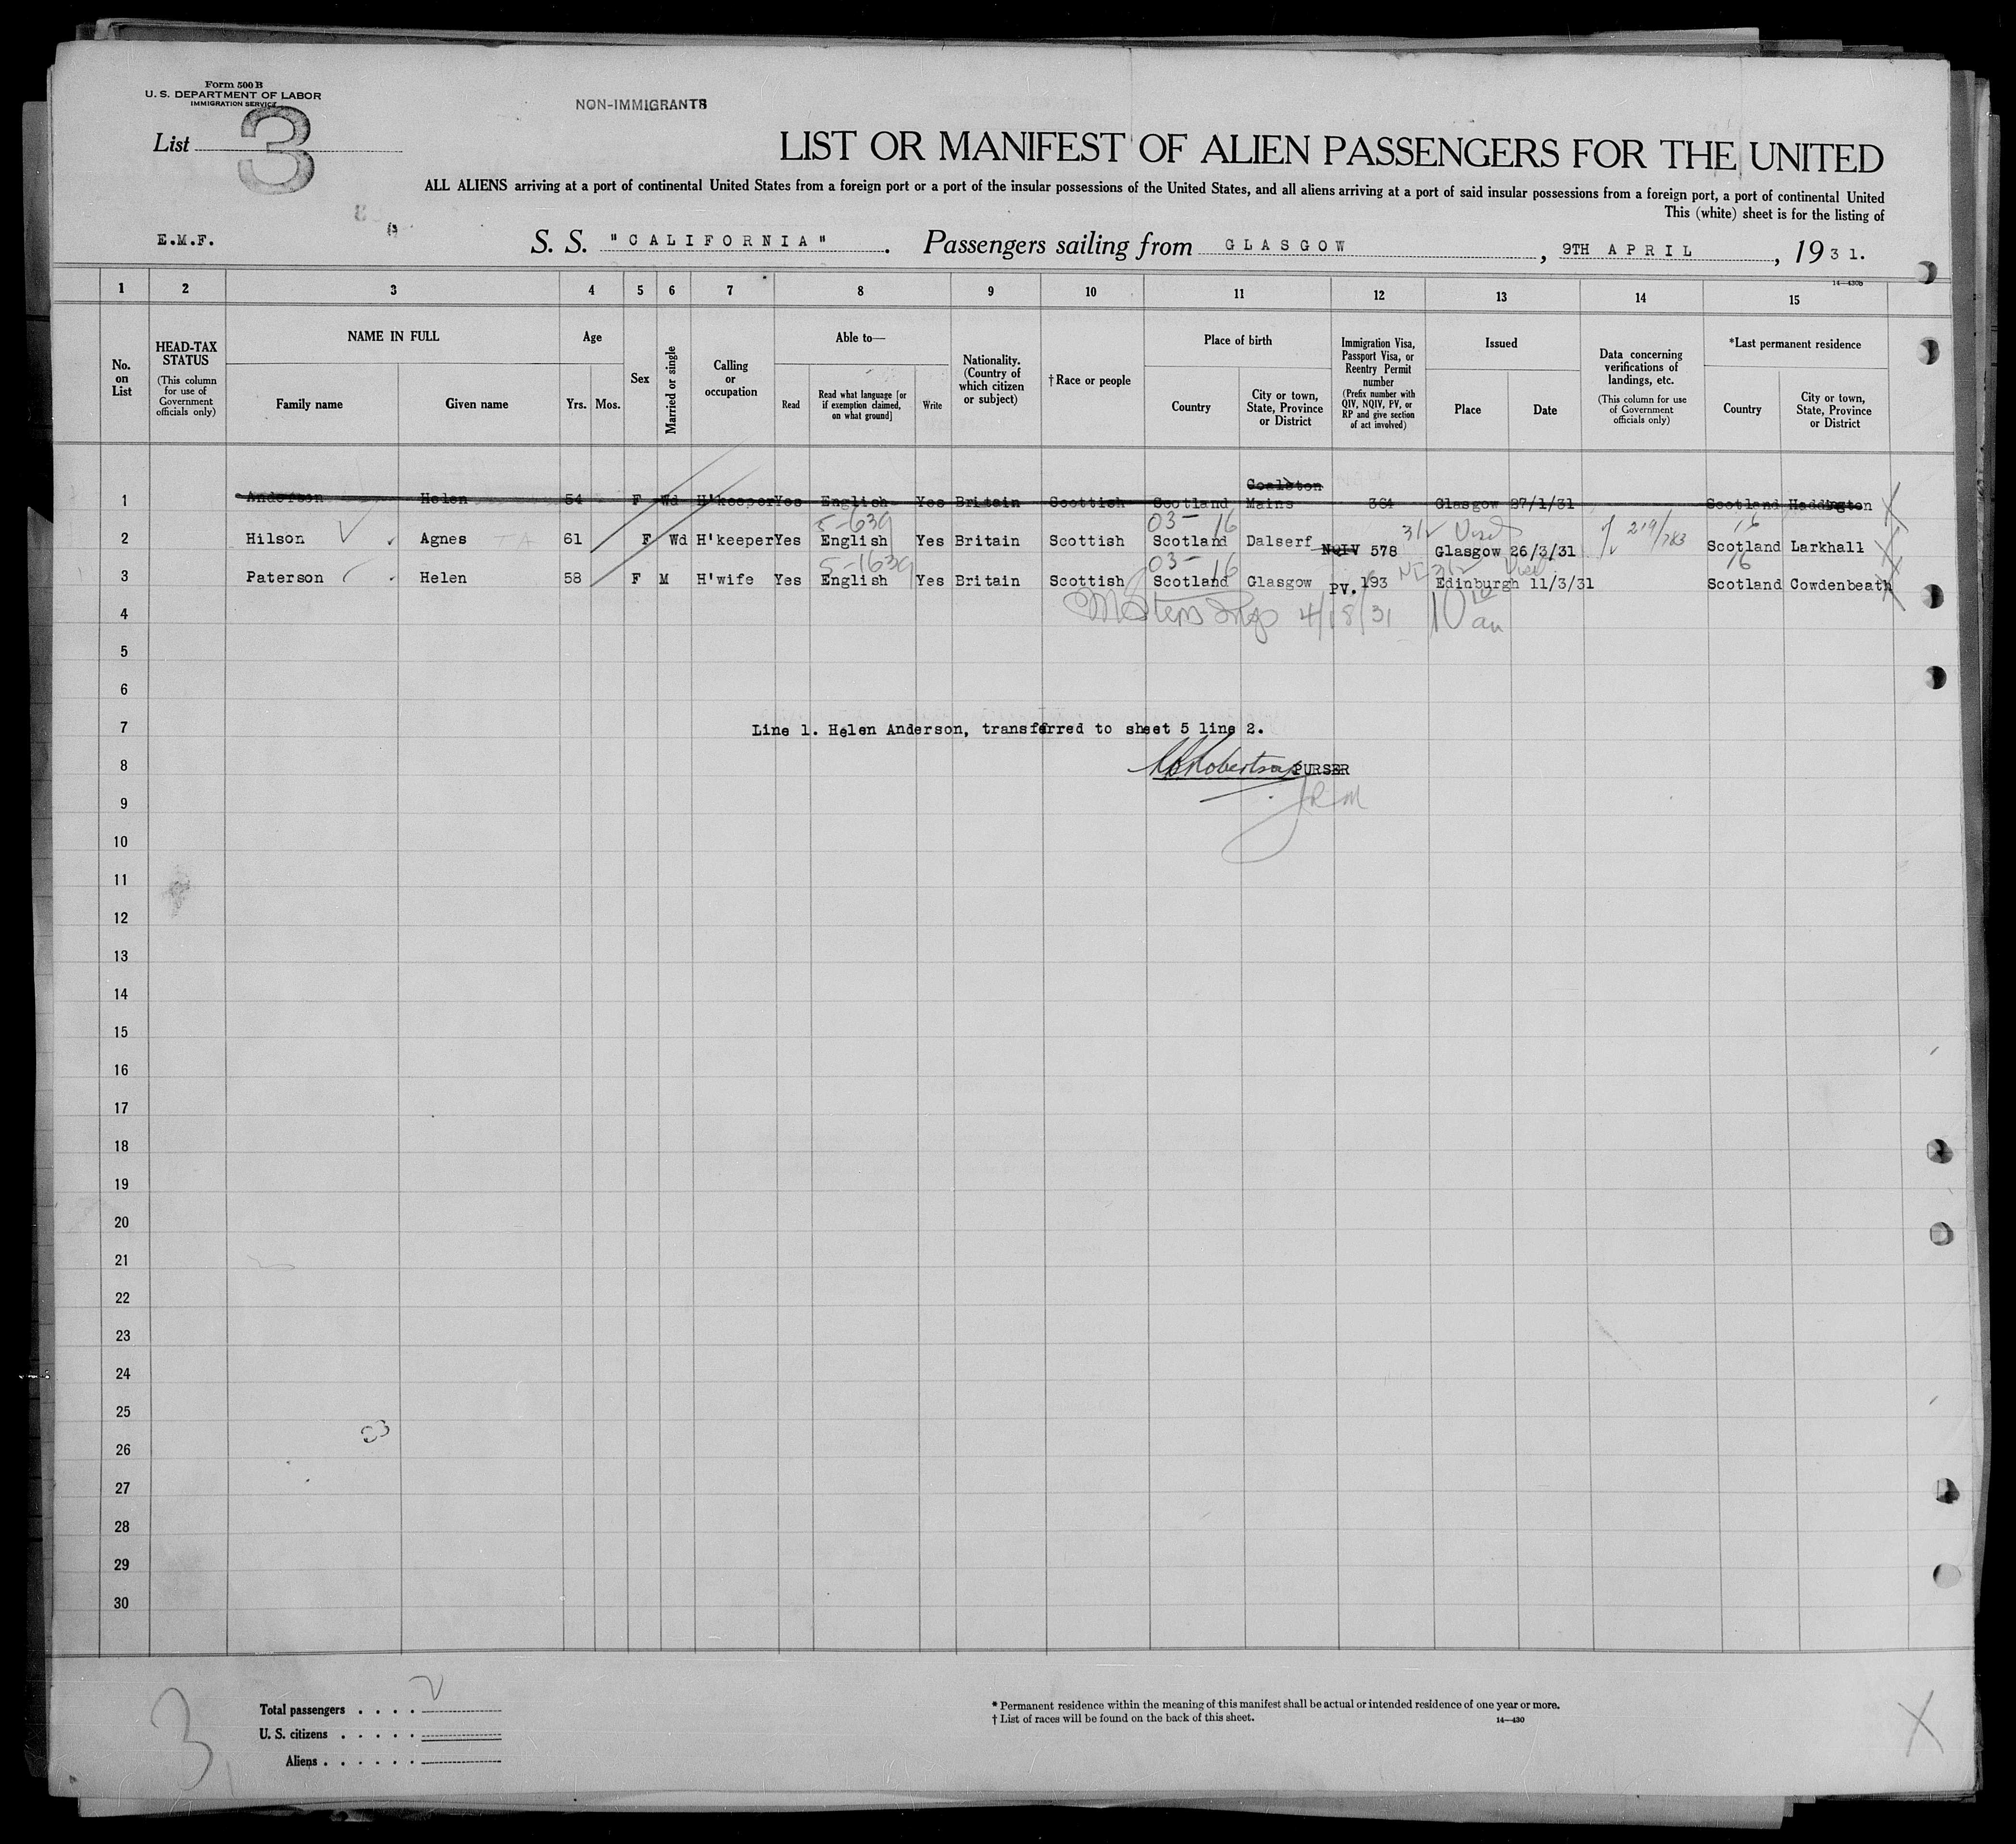 Form 500 B
U. S. DEPARTMENT OF LABOR
IMMIGRATION SERVICE
NON-IMMIGRANTS
List 3
LIST OR MANIFEST OF ALIEN PASSENGERS FOR THE UNITED
ALL ALIENS arriving at a port of continental United States from a foreign port or a port of the insular possessions of the United States, and all aliens arriving at a port of said insular possessions from a foreign port, a port of continental United
This (white) sheet is for the listing of
E.M.F. S. S. "CALIFORNIA". Passengers sailing from GLASGOW, 9TH APRIL, 1931.
14-430B
1 2 3 4 5 6 7 8 9 10 11 12 13 14 15
No. on List
HEAD-TAX STATUS (This column for use of Government officials only)
NAME IN FULL
Family name
Given name
Age
Yrs. Mos.
Sex
Married or single
Calling or occupation
Able to—
Read
Read what language [or if exemption claimed, on what ground]
Write
Nationality. (Country of which citizen or subject)
† Race or people
Place of birth
Country
City or town, State, Province or District
Immigration Visa, Passport Visa, or Reentry Permit number (Prefix number with QIV, NQIV, PV, or RP and give section of act involved)
Issued
Place
Date
Data concerning verifications of landings, etc. (This column for use of Government officials only)
*Last permanent residence
Country
City or town, State, Province or District
1 Anderson Helen 54 F Wd H'keeper Yes English Yes Britain Scottish Scotland Coalston Mains 364 Glasgow 27/1/31 Scotland Haddington
5-639 03- 16 16
2 Hilson Agnes 61 F Wd H'keeper Yes English Yes Britain Scottish Scotland Dalserf NQIV 578 Glasgow 26/3/31 219/783 Scotland Larkhall
5-1639 03- 16 16
3 Paterson Helen 58 F M H'wife Yes English Yes Britain Scottish Scotland Glasgow PV. 193 Edinburgh 11/3/31 Scotland Cowdenbeath
4 4/18/31
5
6
7 Line 1. Helen Anderson, transferred to sheet 5 line 2.
8 Robertson PURSER
9 JRM
10
11
12
13
14
15
16
17
18
19
20
21
22
23
24
25
26
27
28
29
30
3
Total passengers . . . .
U. S. citizens . . . . .
Aliens . . . . . .
* Permanent residence within the meaning of this manifest shall be actual or intended residence of one year or more.
† List of races will be found on the back of this sheet.
14-430
X